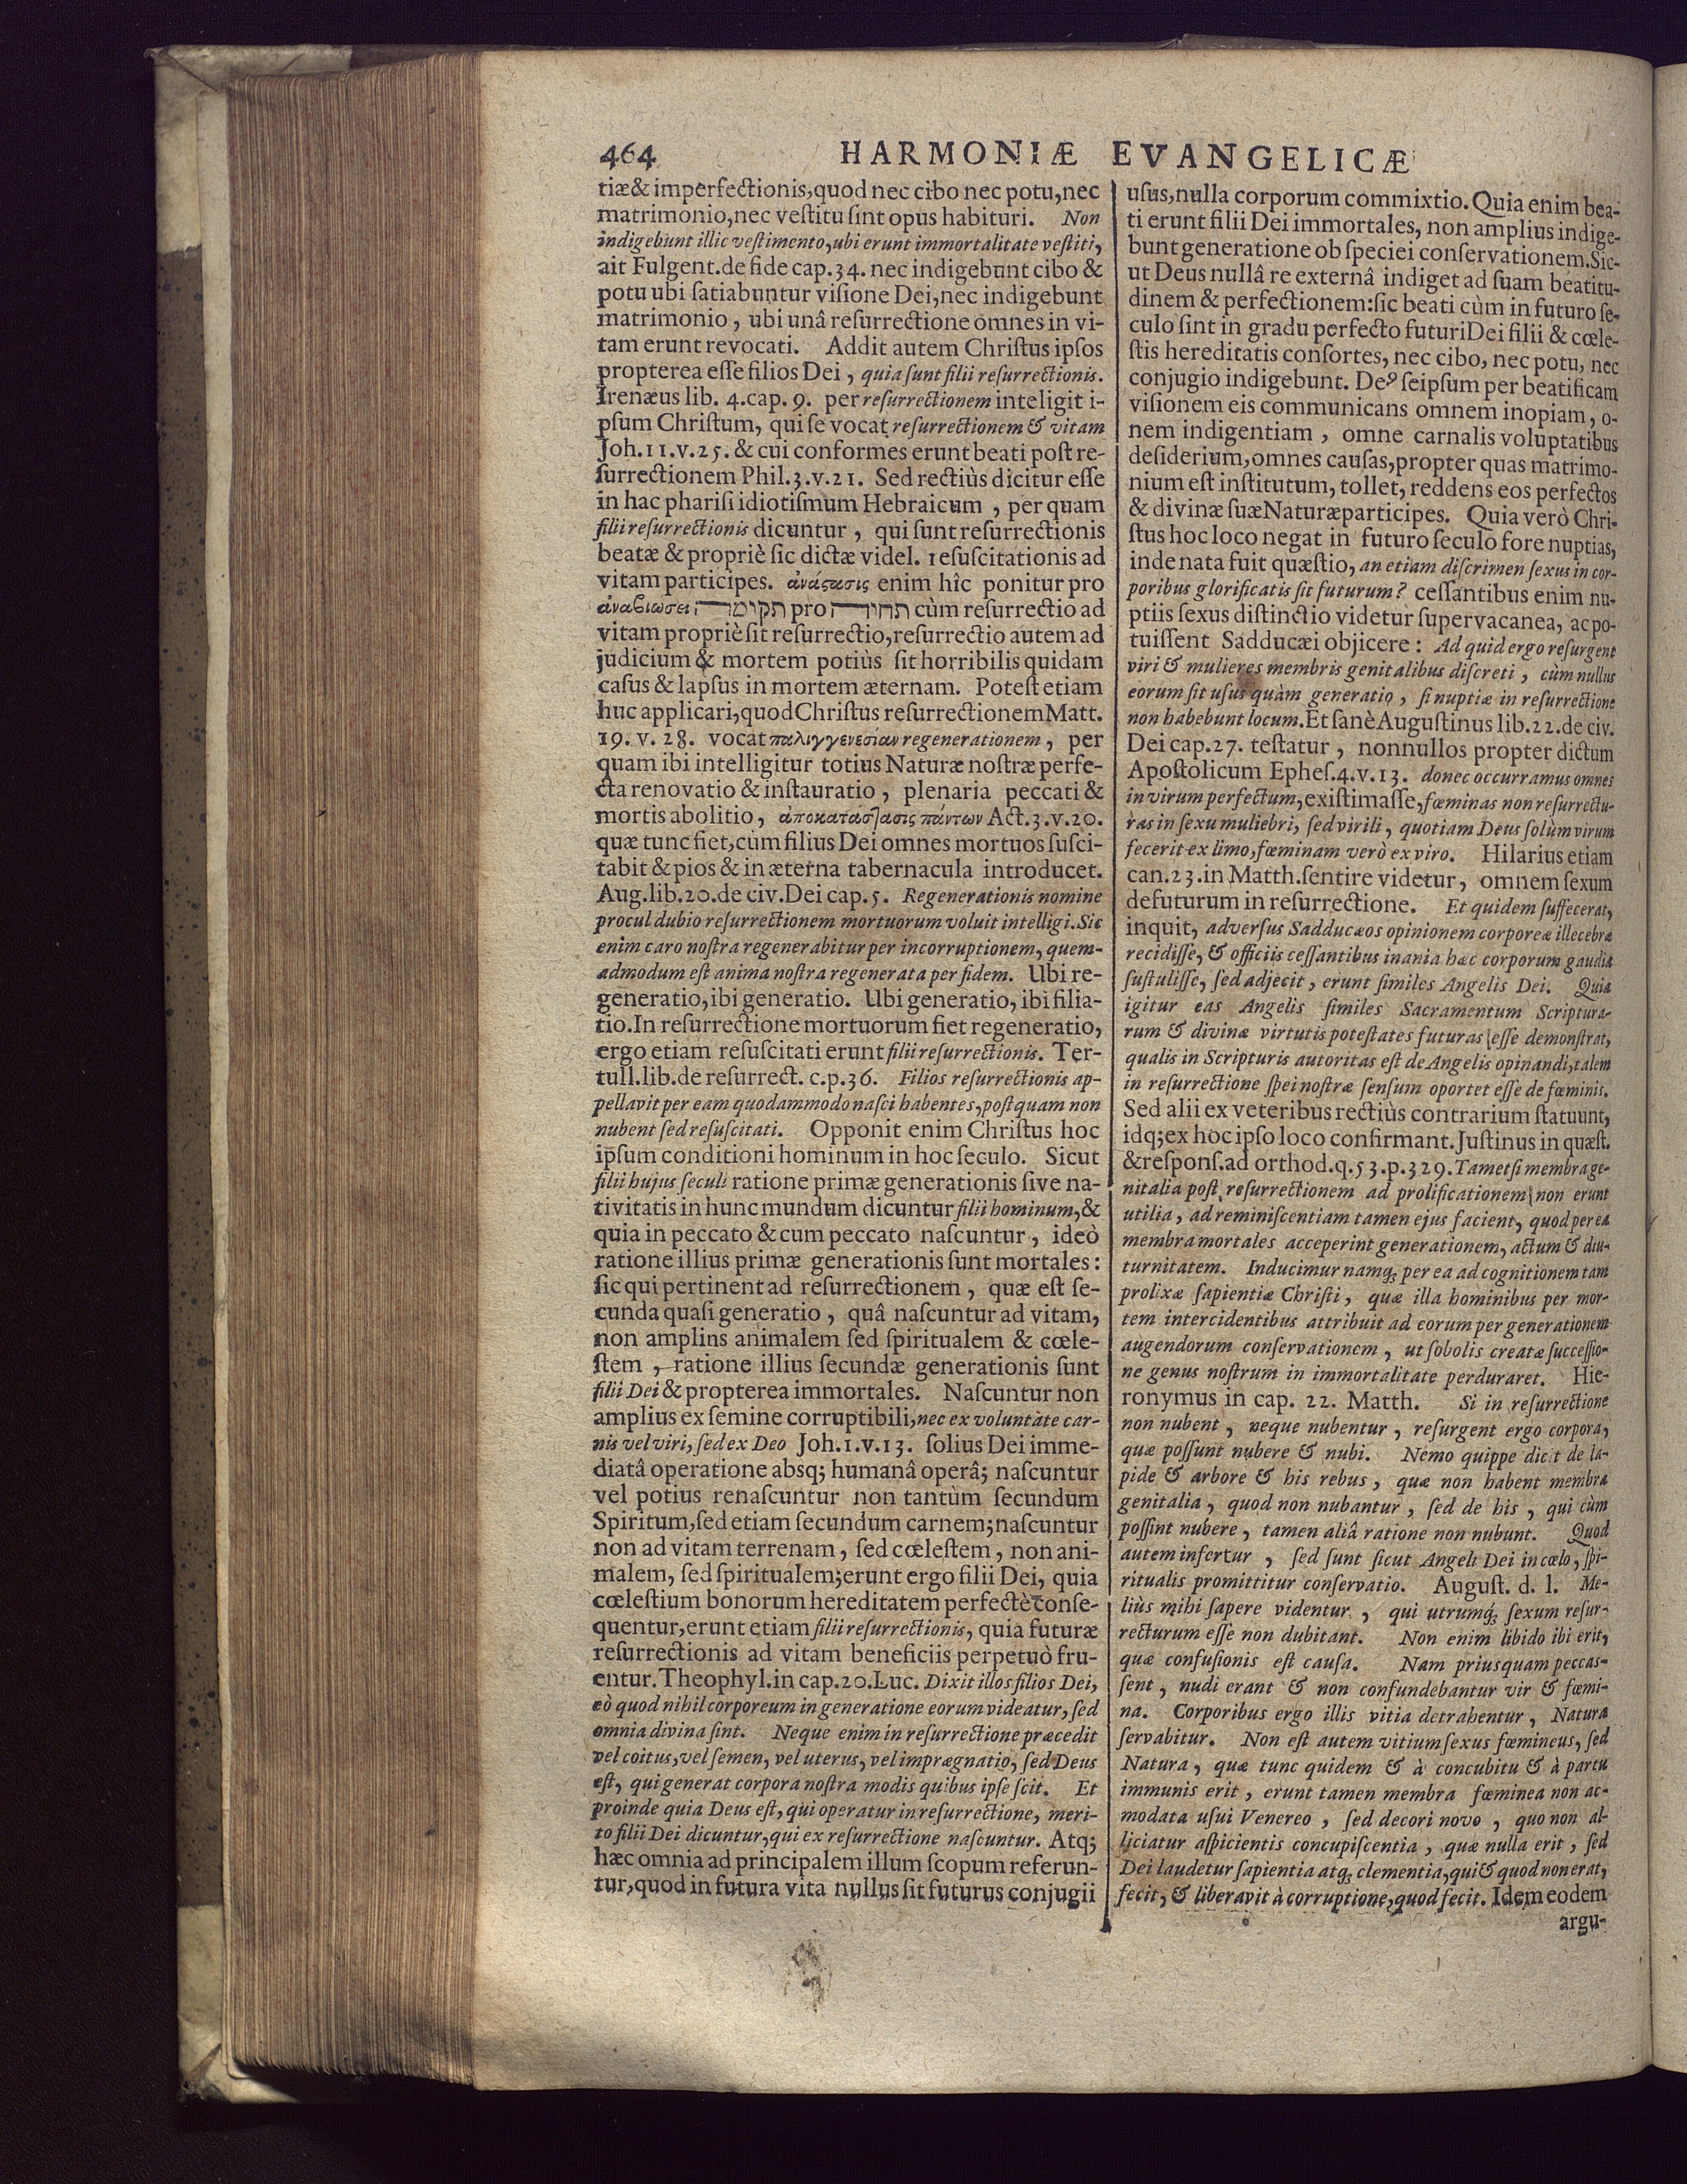 464 HARMONIÆ EVANGELICÆ
tiæ & imperfectionis, quod nec cibo nec potu, nec
matrimonio, nec veſtitu ſint opus habituri. Non
indigebunt illic veſtimento, ubi erunt immortalitate veſtiti,
ait Fulgent. de fide cap. 34. nec indigebunt cibo &
potu ubi ſatiabuntur viſione Dei, nec indigebunt
matrimonio, ubi unâ reſurrectione omnes in vi-
tam erunt revocati. Addit autem Chriſtus ipſos
propterea eſſe filios Dei, quia ſunt filii reſurrectionis.
Irenæus lib. 4. cap. 9. per reſurrectionem inteligit i-
pſum Chriſtum, qui ſe vocat reſurrectionem & vitam
Joh. 11. v. 25. & cui conformes erunt beati poſt re-
ſurrectionem Phil. 3. v. 21. Sed rectiùs dicitur eſſe
in hac phariſi idiotiſmum Hebraicum, per quam
filii reſurrectionis dicuntur, qui ſunt reſurrectionis
beatæ & propriè ſic dictæ videl. reſuſcitationis ad
vitam participes. ἀνάϛασις enim hîc ponitur pro
ἀναβιωσει תקומה pro תחיה cùm reſurrectio ad
vitam propriè ſit reſurrectio, reſurrectio autem ad
judicium & mortem potiùs ſit horribilis quidam
caſus & lapſus in mortem æternam. Poteſt etiam
huc applicari, quod Chriſtus reſurrectionem Matt.
19. v. 28. vocat παλιγγενεσίαν regenerationem, per
quam ibi intelligitur totius Naturæ noſtræ perfe-
cta renovatio & inſtauratio, plenaria peccati &
mortis abolitio, ἀποκατάστασις πάντων Act. 3. v. 20.
quæ tunc fiet, cùm filius Dei omnes mortuos ſuſci-
tabit & pios & in æterna tabernacula introducet.
Aug. lib. 20. de civ. Dei cap. 5. Regenerationis nomine
procul dubio reſurrectionem mortuorum voluit intelligi. Sic
enim caro noſtra regenerabitur per incorruptionem, quem-
admodum eſt anima noſtra regenerata per fidem. Ubi re-
generatio, ibi generatio. Ubi generatio, ibi filia-
tio. In reſurrectione mortuorum fiet regeneratio,
ergo etiam reſuſcitati erunt filii reſurrectionis. Ter-
tull. lib. de reſurrect. c. p. 36. Filios reſurrectionis ap-
pellavit per eam quodammodo naſci habentes, poſtquam non
nubent ſed reſuſcitati. Opponit enim Chriſtus hoc
ipſum conditioni hominum in hoc ſeculo. Sicut
filii hujus ſeculi ratione primæ generationis ſive na-
tivitatis in hunc mundum dicuntur filii hominum, &
quia in peccato & cum peccato naſcuntur, ideò
ratione illius primæ generationis ſunt mortales:
ſic qui pertinent ad reſurrectionem, quæ eſt ſe-
cunda quaſi generatio, quâ naſcuntur ad vitam,
non amplins animalem ſed ſpiritualem & cœle-
ſtem, ratione illius ſecundæ generationis ſunt
filii Dei & propterea immortales. Naſcuntur non
amplius ex ſemine corruptibili, nec ex voluntate car-
nis vel viri, ſed ex Deo Joh. 1. v. 13. ſolius Dei imme-
diatâ operatione absq; humanâ operâ; naſcuntur
vel potius renaſcuntur non tantùm ſecundum
Spiritum, ſed etiam ſecundum carnem; naſcuntur
non ad vitam terrenam, ſed cœleſtem, non ani-
malem, ſed ſpiritualem; erunt ergo filii Dei, quia
cœleſtium bonorum hereditatem perfectè conſe-
quentur, erunt etiam filii reſurrectionis, quia futuræ
reſurrectionis ad vitam beneficiis perpetuò fru-
entur. Theophyl. in cap. 20. Luc. Dixit illos filios Dei,
eò quod nihil corporeum in generatione eorum videatur, ſed
omnia divina ſint. Neque enim in reſurrectione præcedit
vel coitus, vel ſemen, vel uterus, vel imprægnatio, ſed Deus
eſt, qui generat corpora noſtra modis quibus ipſe ſcit. Et
proinde quia Deus eſt, qui operatur in reſurrectione, meri-
to filii Dei dicuntur, qui ex reſurrectione naſcuntur. Atq;
hæc omnia ad principalem illum ſcopum referun-
tur, quod in futura vita nullus ſit futurus conjugii
uſus, nulla corporum commixtio. Quia enim bea-
ti erunt filii Dei immortales, non amplius indige-
bunt generatione ob ſpeciei conſervationem. Sic-
ut Deus nullâ re externâ indiget ad ſuam beatitu-
dinem & perfectionem: ſic beati cùm in futuro ſe-
culo ſint in gradu perfecto futuri Dei filii & cœle-
ſtis hereditatis conſortes, nec cibo, nec potu, nec
conjugio indigebunt. Deꝰ ſeipſum per beatificam
viſionem eis communicans omnem inopiam, o-
nem indigentiam, omne carnalis voluptatibus
deſiderium, omnes cauſas, propter quas matrimo-
nium eſt inſtitutum, tollet, reddens eos perfectos
& divinæ ſuæ Naturæ participes. Quia verò Chri-
ſtus hoc loco negat in futuro ſeculo fore nuptias,
inde nata fuit quæſtio, an etiam diſcrimen ſexus in cor-
poribus glorificatis ſit futurum? ceſſantibus enim nu-
ptiis ſexus diſtinctio videtur ſupervacanea, ac po-
tuiſſent Sadducæi objicere: Ad quid ergo reſurgent
viri & mulieres membris genitalibus diſcreti, cùm nullus
eorum ſit uſus quàm generatio, ſi nuptiæ in reſurrectione
non habebunt locum. Et ſanè Auguſtinus lib. 22. de civ.
Dei cap. 27. teſtatur, nonnullos propter dictum
Apoſtolicum Epheſ. 4. v. 13. donec occurramus omnes
in virum perfectum, exiſtimaſſe, fœminas non reſurrectu-
ras in ſexu muliebri, ſed virili, quotiam Deus ſolùm virum
fecerit ex limo, fœminam verò ex viro. Hilarius etiam
can. 23. in Matth. ſentire videtur, omnem ſexum
defuturum in reſurrectione. Et quidem ſuffecerat,
inquit, adverſus Sadducæos opinionem corporeæ illecebræ
recidiſſe, & officiis ceſſantibus inania hæc corporum gaudia
ſuſtuliſſe, ſed adjecit, erunt ſimiles Angelis Dei. Quia
igitur eas Angelis ſimiles Sacramentum Scriptura-
rum & divinæ virtutis poteſtates futuras eſſe demonſtrat,
qualis in Scripturis autoritas eſt de Angelis opinandi, talem
in reſurrectione ſpei noſtræ ſenſum oportet eſſe de fœminis.
Sed alii ex veteribus rectiùs contrarium ſtatuunt,
idq; ex hoc ipſo loco confirmant. Juſtinus in quæſt.
& reſponſ. ad orthod. q. 53. p. 329. Tametſi membra ge-
nitalia poſt reſurrectionem ad prolificationem non erunt
utilia, ad reminiſcentiam tamen ejus facient, quod per ea
membra mortales acceperint generationem, actum & diu-
turnitatem. Inducimur namq; per ea ad cognitionem tam
prolixæ ſapientiæ Chriſti, quæ illa hominibus per mor-
tem intercidentibus attribuit ad eorum per generationem
augendorum conſervationem, ut ſobolis creatæ ſucceſſio-
ne genus noſtrum in immortalitate perduraret. Hie-
ronymus in cap. 22. Matth. Si in reſurrectione
non nubent, neque nubentur, reſurgent ergo corpora,
quæ poſſunt nubere & nubi. Nemo quippe dicit de la-
pide & arbore & his rebus, quæ non habent membra
genitalia, quod non nubantur, ſed de his, qui cùm
poſſint nubere, tamen aliâ ratione non nubunt. Quod
autem infertur, ſed ſunt ſicut Angeli Dei in cœlo, ſpi-
ritualis promittitur conſervatio. Auguſt. d. l. Me-
liùs mihi ſapere videntur, qui utrumq; ſexum reſur-
recturum eſſe non dubitant. Non enim libido ibi erit,
quæ confuſionis eſt cauſa. Nam priusquam peccas-
ſent, nudi erant & non confundebantur vir & fœmi-
na. Corporibus ergo illis vitia detrahentur, Natura
ſervabitur. Non eſt autem vitium ſexus fœmineus, ſed
Natura, quæ tunc quidem & à concubitu & à partu
immunis erit, erunt tamen membra fœminea non ac-
modata uſui Venereo, ſed decori novo, quo non al-
liciatur aſpicientis concupiſcentia, quæ nulla erit, ſed
Dei laudetur ſapientia atq; clementia, qui & quod non erat,
fecit, & liberavit à corruptione, quod fecit. Idem eodem
argu-